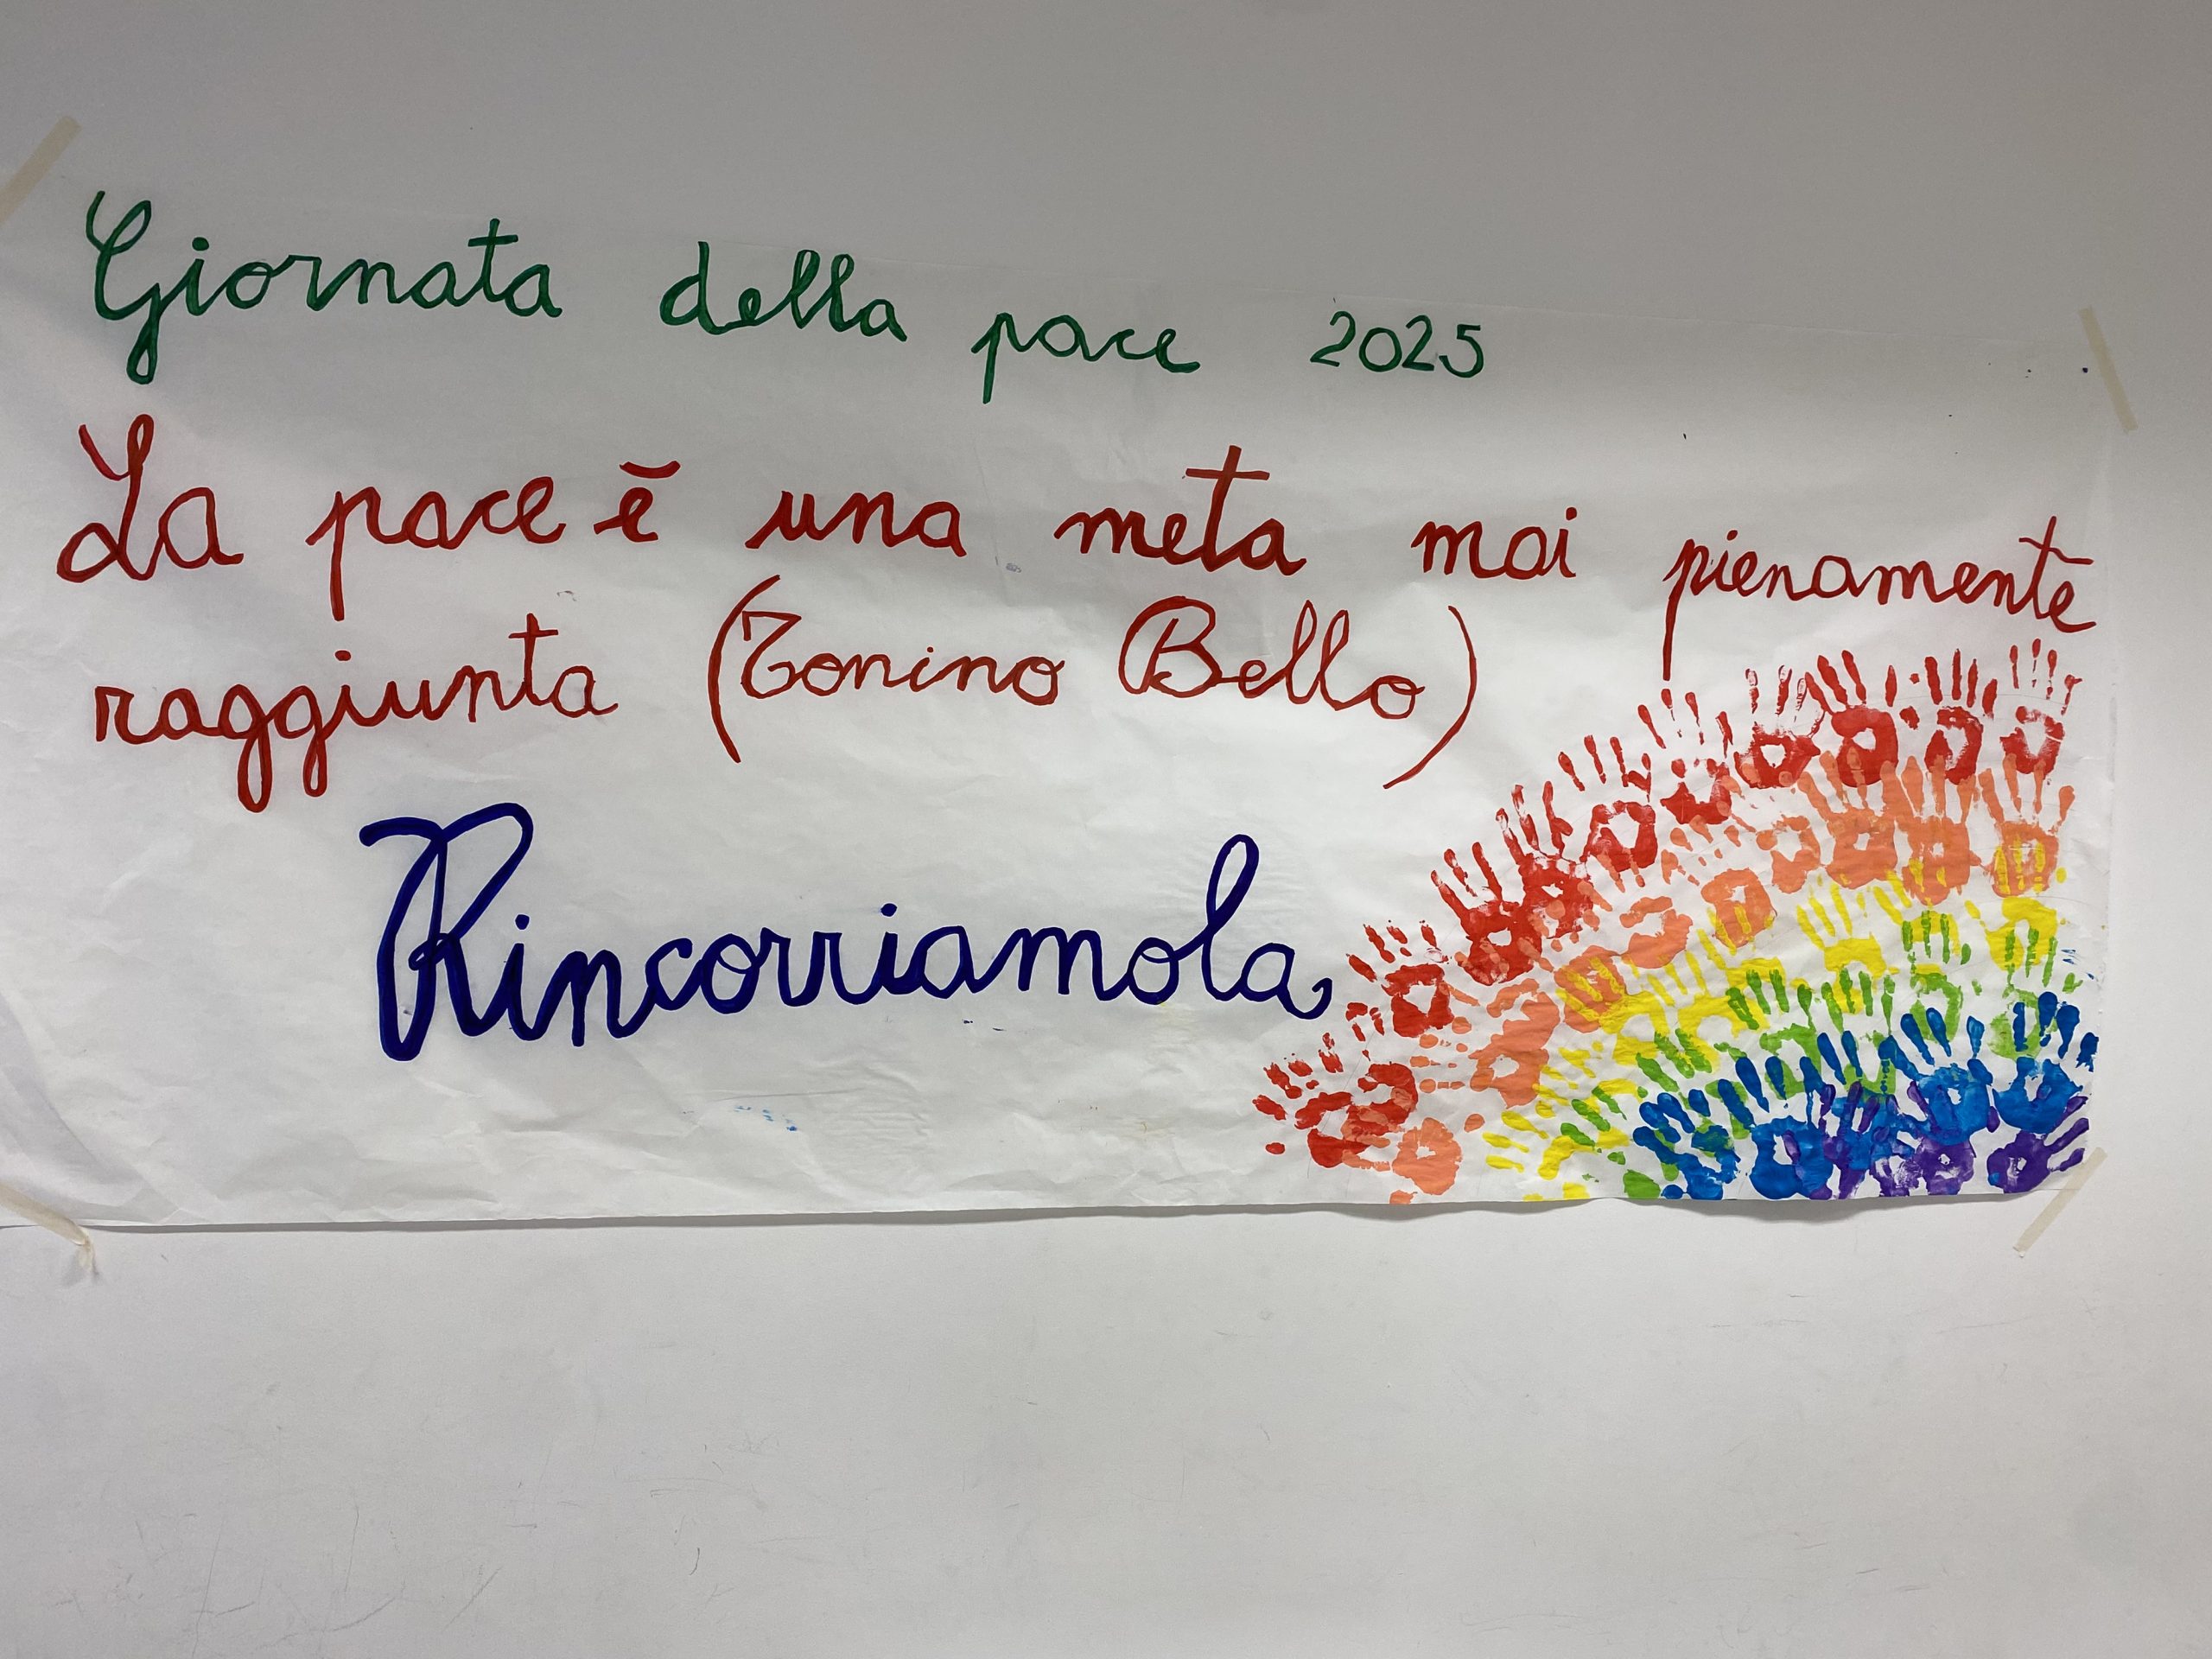 Giornata della pace 2025
La pace è una meta mai pienamente
raggiunta (Tonino Bello)
Rincorriamola